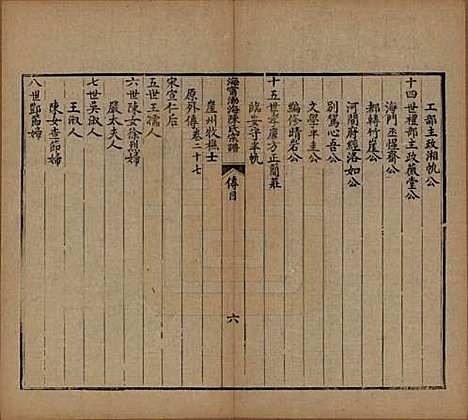 工部主政湘帆公
十四世種部主政薇堂公
海門丞惺齋公
都轉竹崖公
河間府經洛如公
別駕心吾公
文學半圭公
編修晴岩公
十五世孝廉方正蘭莊
臨安守半帆
海寧渤海陳氏宗譜
傳目
六
崖州牧樵士
原外傳卷二十七
宋宣仁后
五世王孺人
六世陳女徐列婦
嚴太夫人
七世吳淑人
王淑人
陳女查節婦
八世鄞節婦